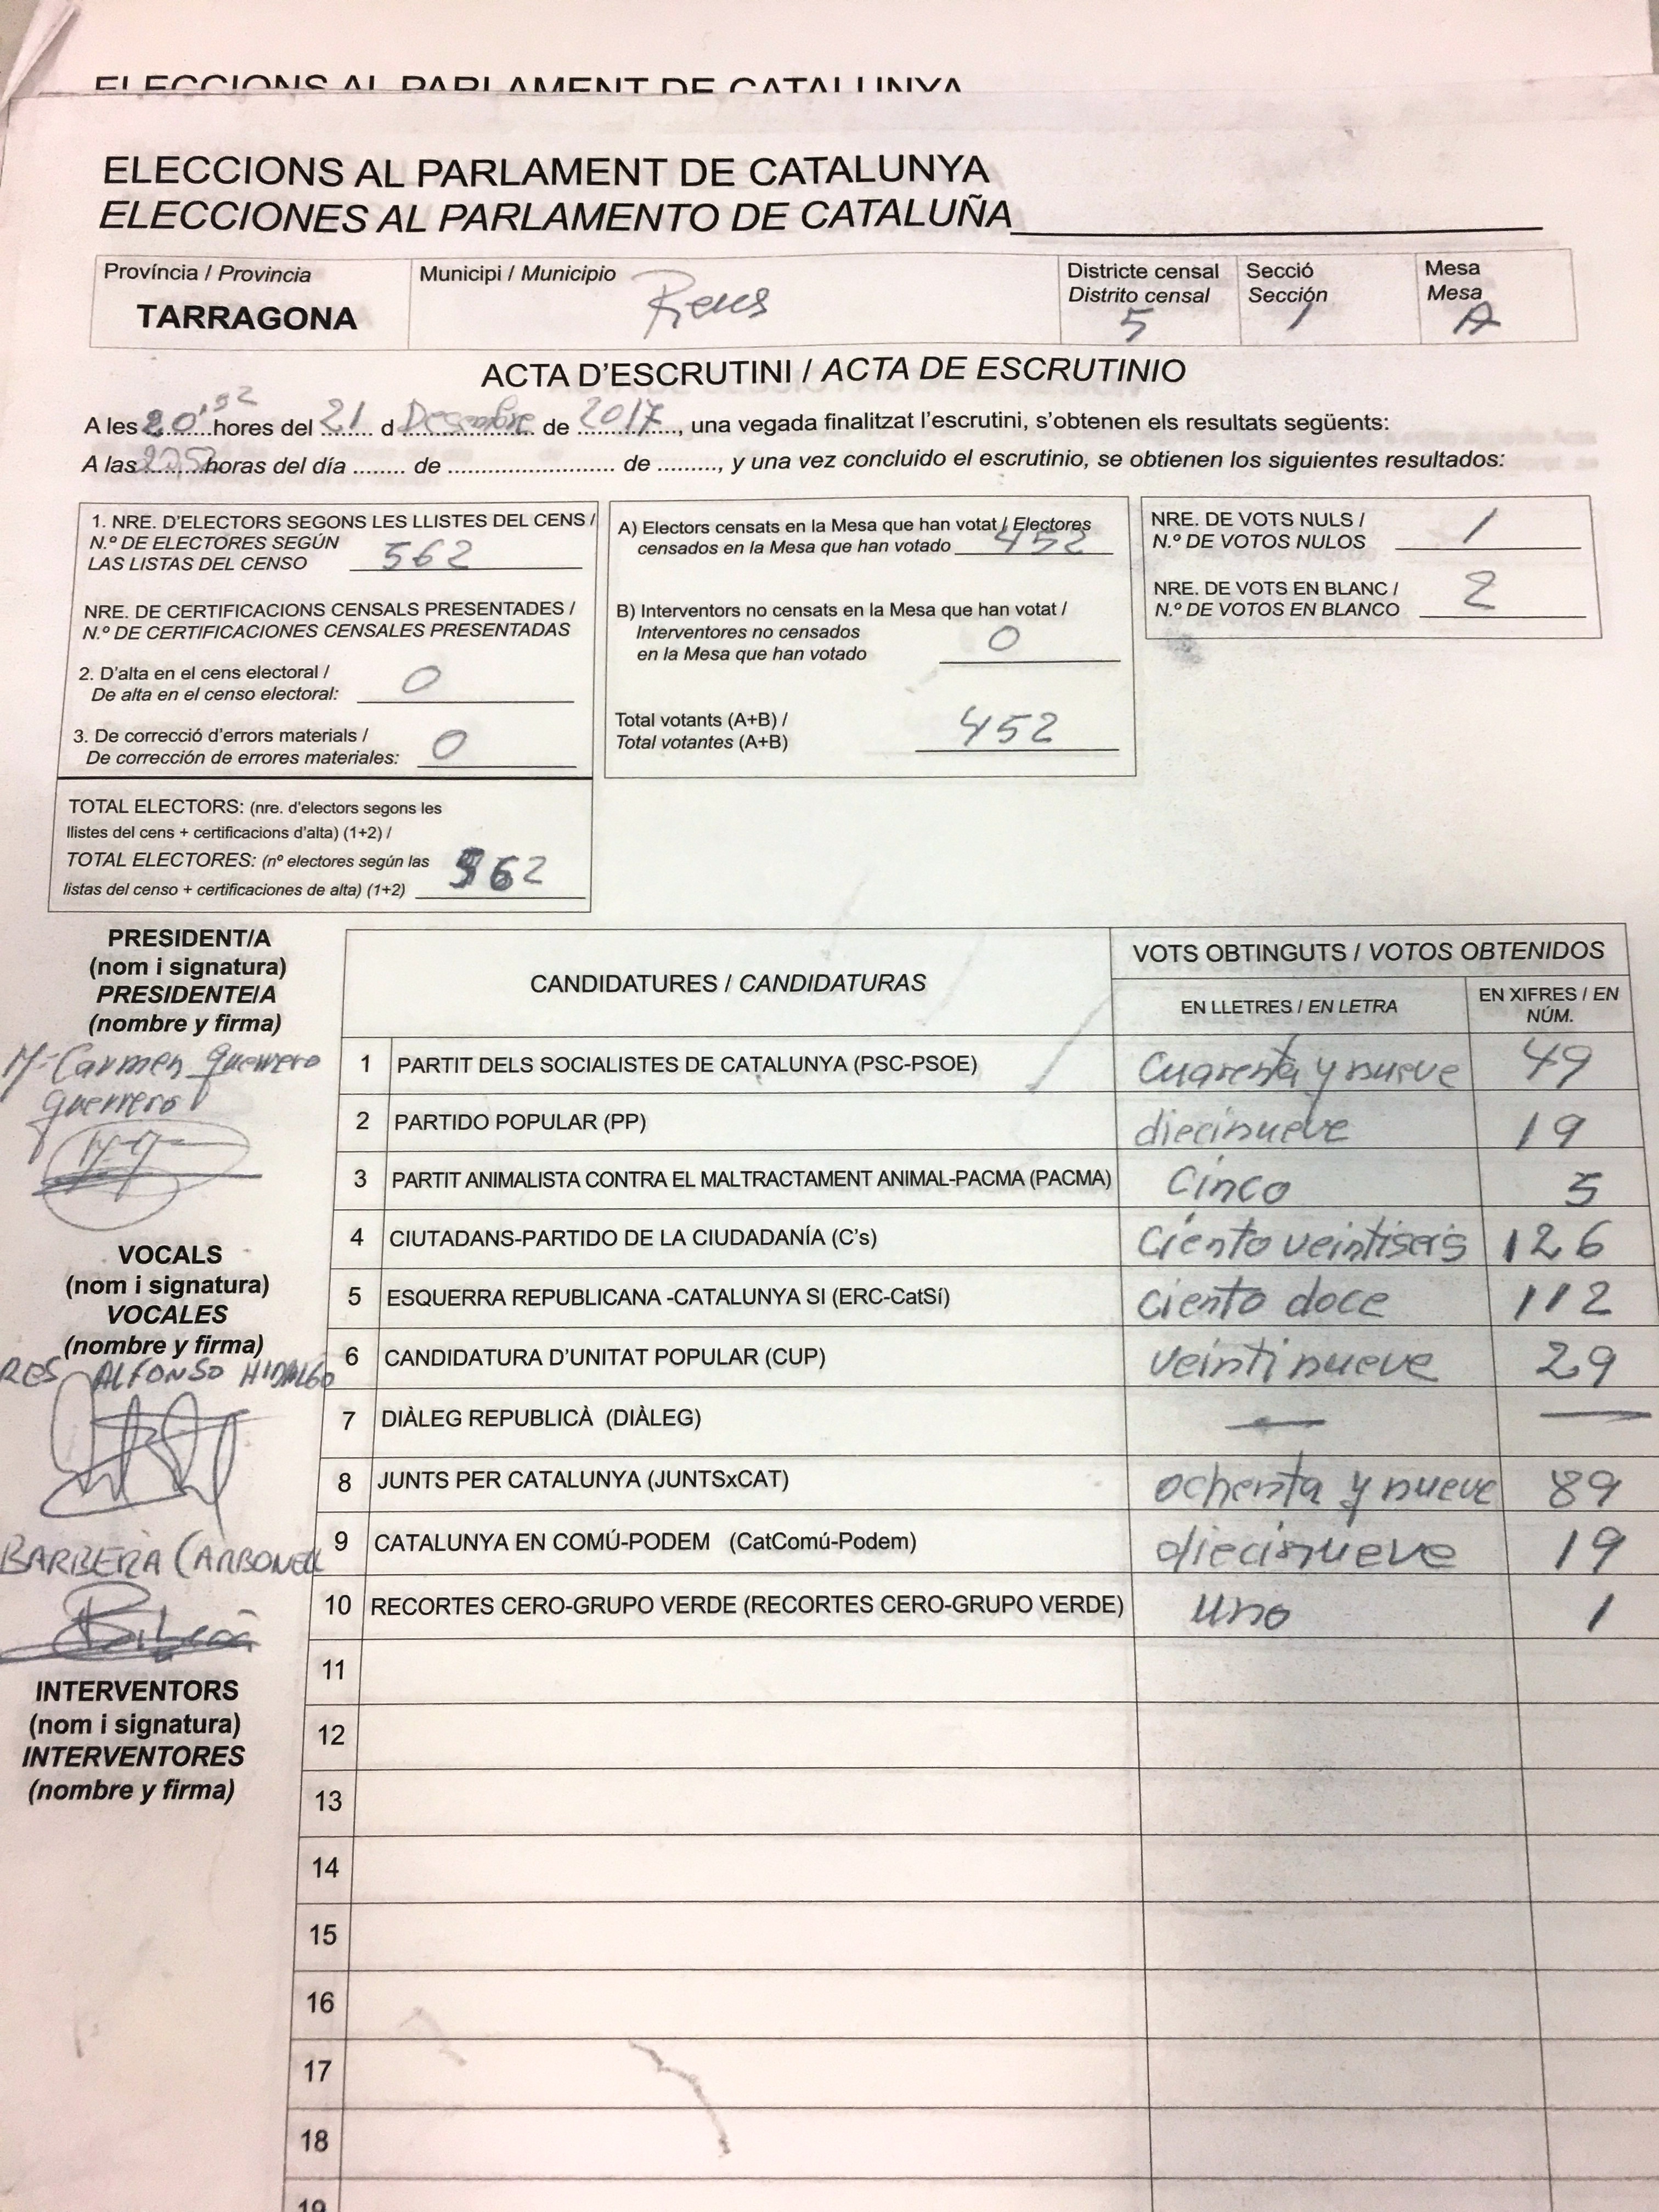 ELECCIONS AL PARLAMENT DE CATALUNYA
ELECCIONS AL PARLAMENT DE CATALUNYA
ELECCIONES AL PARLAMENTO DE CATALUÑA
Província / Provincia
TARRAGONA
Municipi / Municipio
Reus
Districte censal
Distrito censal
5
Secció
Sección
1
Mesa
Mesa
A
ACTA D'ESCRUTINI / ACTA DE ESCRUTINIO
A les 20'52 hores del 21 d Desembre de 2017, una vegada finalitzat l'escrutini, s'obtenen els resultats següents:
A las horas del día ........ de ........................ de ........., y una vez concluido el escrutinio, se obtienen los siguientes resultados:
1. NRE. D'ELECTORS SEGONS LES LLISTES DEL CENS /
N.º DE ELECTORES SEGÚN
LAS LISTAS DEL CENSO 562
NRE. DE CERTIFICACIONS CENSALS PRESENTADES /
N.º DE CERTIFICACIONES CENSALES PRESENTADAS
2. D'alta en el cens electoral /
De alta en el censo electoral: 0
3. De correcció d'errors materials /
De corrección de errores materiales: 0
TOTAL ELECTORS: (nre. d'electors segons les
llistes del cens + certificacions d'alta) (1+2) /
TOTAL ELECTORES: (nº electores según las
listas del censo + certificaciones de alta) (1+2) 562
A) Electors censats en la Mesa que han votat / Electores
censados en la Mesa que han votado 452
B) Interventors no censats en la Mesa que han votat /
Interventores no censados
en la Mesa que han votado 0
Total votants (A+B) /
Total votantes (A+B) 452
NRE. DE VOTS NULS /
N.º DE VOTOS NULOS 1
NRE. DE VOTS EN BLANC /
N.º DE VOTOS EN BLANCO 2
PRESIDENT/A
(nom i signatura)
PRESIDENTE/A
(nombre y firma)
Mª Carmen Guerrero
Guerrero
VOCALS
(nom i signatura)
VOCALES
(nombre y firma)
RES ALFONSO HIDALGO
BARBERÀ CARBONELL
Barberà
INTERVENTORS
(nom i signatura)
INTERVENTORES
(nombre y firma)
CANDIDATURES / CANDIDATURAS
VOTS OBTINGUTS / VOTOS OBTENIDOS
EN LLETRES / EN LETRA
EN XIFRES / EN
NÚM.
1 PARTIT DELS SOCIALISTES DE CATALUNYA (PSC-PSOE) Cuarenta y nueve 49
2 PARTIDO POPULAR (PP) diecinueve 19
3 PARTIT ANIMALISTA CONTRA EL MALTRACTAMENT ANIMAL-PACMA (PACMA) Cinco 5
4 CIUTADANS-PARTIDO DE LA CIUDADANÍA (C's) Ciento veintiseis 126
5 ESQUERRA REPUBLICANA -CATALUNYA SI (ERC-CatSí) ciento doce 112
6 CANDIDATURA D'UNITAT POPULAR (CUP) veintinueve 29
7 DIÀLEG REPUBLICÀ (DIÀLEG) — —
8 JUNTS PER CATALUNYA (JUNTSxCAT) ochenta y nueve 89
9 CATALUNYA EN COMÚ-PODEM (CatComú-Podem) diecinueve 19
10 RECORTES CERO-GRUPO VERDE (RECORTES CERO-GRUPO VERDE) uno 1
11
12
13
14
15
16
17
18
19